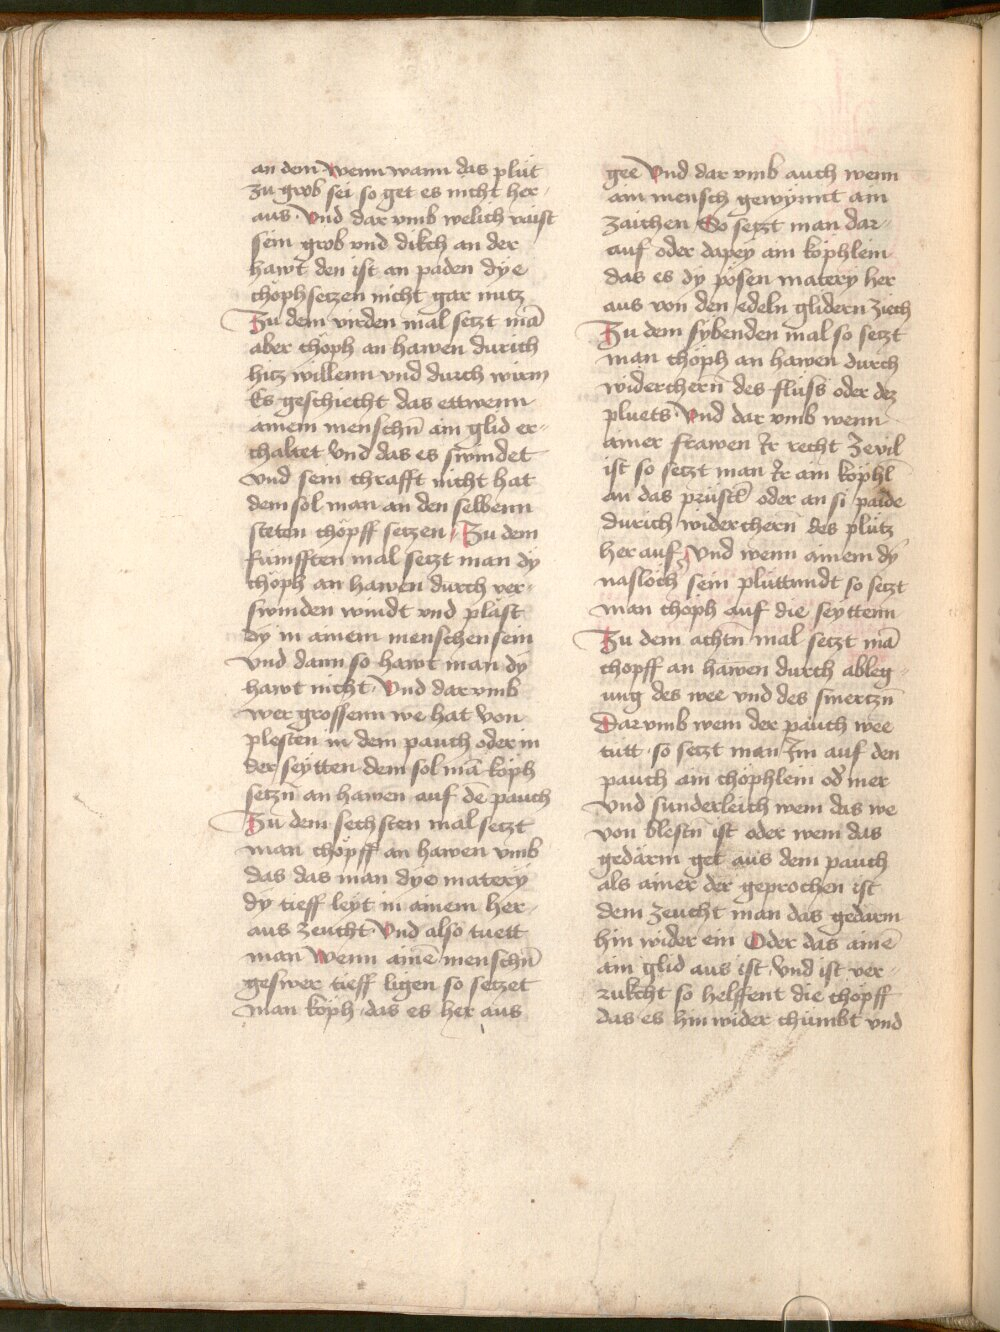 an dem wenn wann das plüt
zu grob sei so get es nicht her-
aus. Vnd dar vmb welich vaist
sein grob vnd dikch an der
hawt den ist an paden dye
chöphsetzen nicht gar nutz
Zu dem virden mal setzt mā
aber chöph an hawen durich
hitz willenn vnd durch wirm
Es geschiecht das ettwenn
ainem menschñ ain glid er-
chaltet Vnd das es swindet
Vnd sein chrafft nicht hat
dem sol man an den selbenn
steten chöpff setzen / Zu dem
fümfften mal setzt man dy
chöph an hawen durch ver-
swinden windt vnd pläst
dy in ainem menschen sein
Vnd dann so hawt man dy
hawt nicht. Vnd dar vmb
wer grossenn we hat Von
plesten in dem pauch oder in
der seytten dem sol mā köph
setzñ an hawen auf dē pauch
Zu dem sechsten mal setzt
man chöpff an hawen vmb
das das man dye matery
dy tieff leyt in ainem her-
aus zeucht Vnd also tuett
man wenn ainē menschñ
geswer tieff ligen so setzet
man köph das es her aus
gee Vnd dar vmb auch wenn
ain mensch gewynnt ain
zaichen So setzt man dar-
auf oder dapey ain köphlein
das es dy pösen matery her
aus von den edeln glidern ziech
Zu dem sybenden mal so setzt
man chöph an hawen durch
widerchern̄ des flüss oder dez
pluets Vnd dar vmb wenn
ainer frawen Ir recht zevil
ist so setzt man Ir ain köphl
an das prüstl oder an si paide
durich widerchern̄ des plütz
her auf Vnd wenn ainem dy
naslöch sein plüttundt so setzt
man chöph auf die seyttenn
Zu dem achtñ mal setzt mā
chöpff an hawen durch ableg-
ung des wee vnd des smertzñ
Dar vmb wem der pauch wee
tütt so setzt man Im auf den
pauch ain chöphlein od͛ mer
Vnd sunderleich wem das we
von blestñ ist oder wem das
gedärm get aus dem pauch
als ainer der geprochen ist
dem zeucht man das gedärm
hin wider ein Oder das ainē
ain glid aus ist Vnd ist ver-
zukcht so helffent die chöpff
das es hin wider chümbt vnd